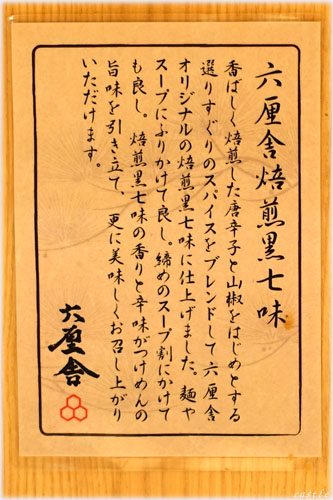 六厘舎焙煎黒七味
香ばしく焙煎した唐辛子と山椒をはじめとする
選りすぐりのスパイスをブレンドして六厘舎
オリジナルの焙煎黒七味に仕上げました。麺や
スープにふりかけて良し。締めのスープ割にかけて
も良し。焙煎黒七味の香りと辛味がつけめんの
旨味を引き立て、更に美味しくお召し上がり
いただけます。
六厘舎